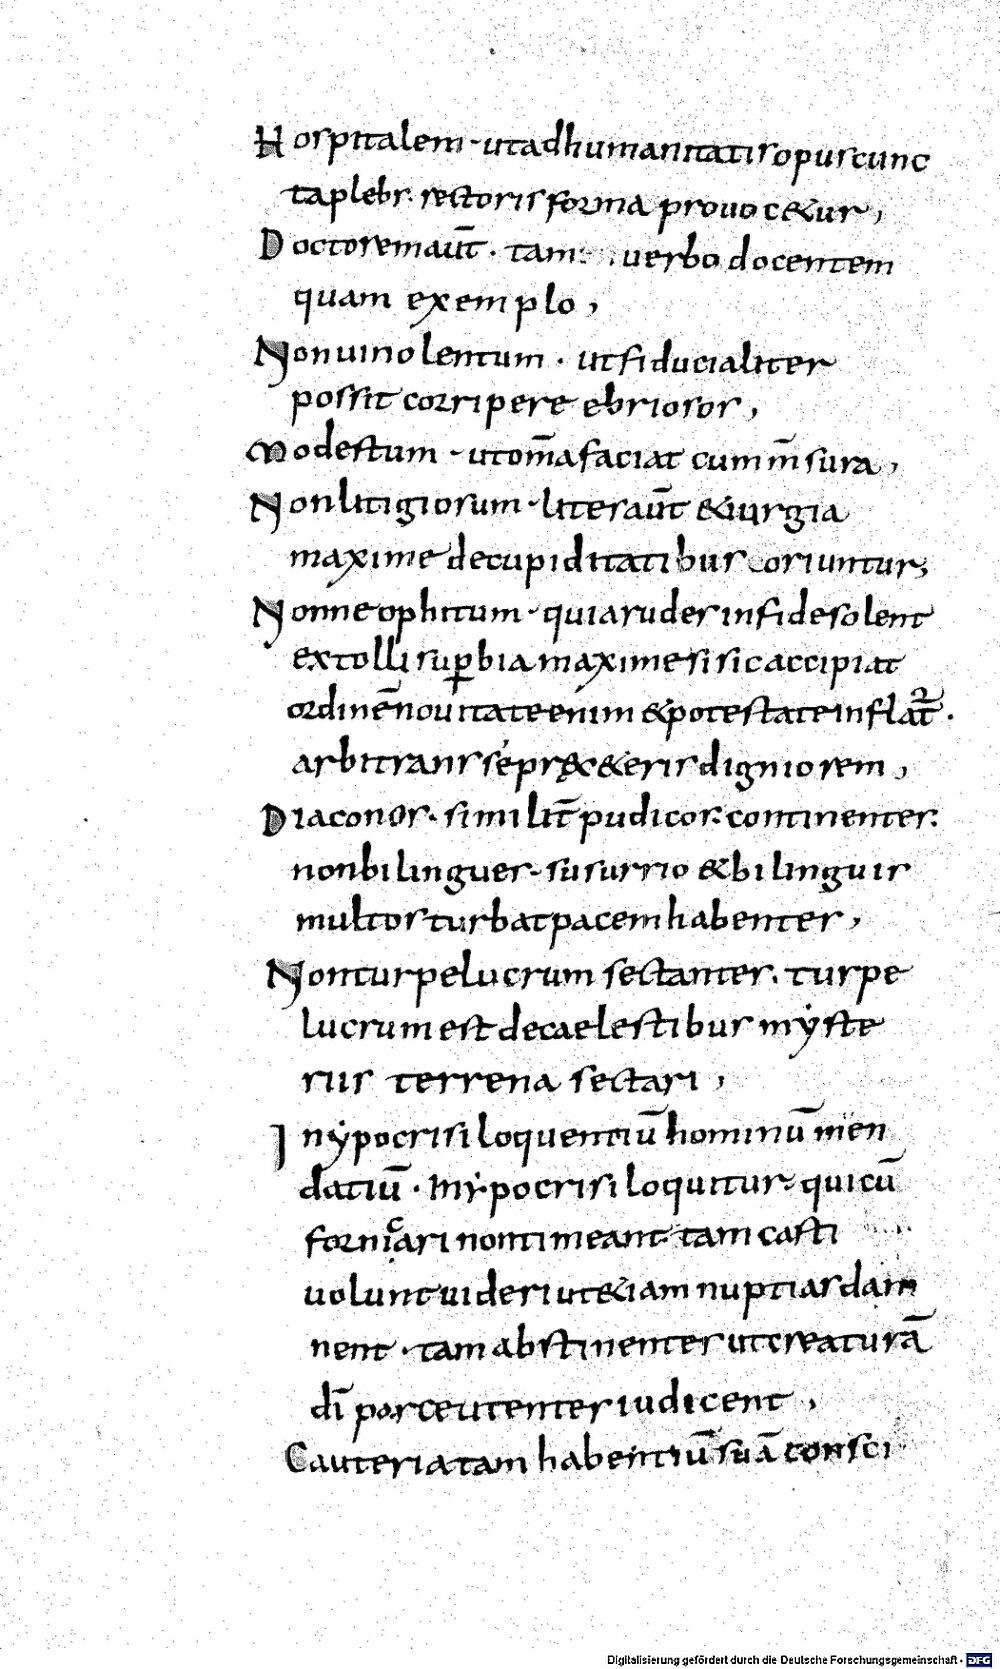 Hospitalem · ut ad humanitatis opus cunc
ta plebs · rectoris forma provoc&ur,
Doctorem aut̄ · tam verbo docentem
quam exemplo,
Non uinolentum · ut fiducialiter
possit corripere ebriosos,
Modestum · ut om̄a faciat cum m̄sura,
Non litigiosum · lites aut̄ & iurgia
maxime de cupiditatibus oriuntur,
Non neophitum · quia rudes in fide solent
extolli sup̱bia maxime si sic accipiat
ordinē nouitate enim & potestate inflat̄ ·
arbitrans se pręc&eris digniorem,
Diaconos · similit̄ pudicos · continentes ·
non bilingues · susurrio & bilinguis
multos turbat pacem habentes,
Non turpe lucrum sectantes · turpe
lucrum est de caelestibus mẏste
riis terrena sectari,
In ẏpocrisi loquentiū hominū men
datiū · In ẏpocrisi loquitur · qui cū
fornicari non timeant tam casti
uolunt uideri ut &iam nuptias dam
nent · tam abstinentes ut creaturā
dī parce utentes iudicent,
Cauteriatam habentiū suā consci
Digitalisierung gefördert durch die Deutsche Forschungsgemeinschaft · DFG